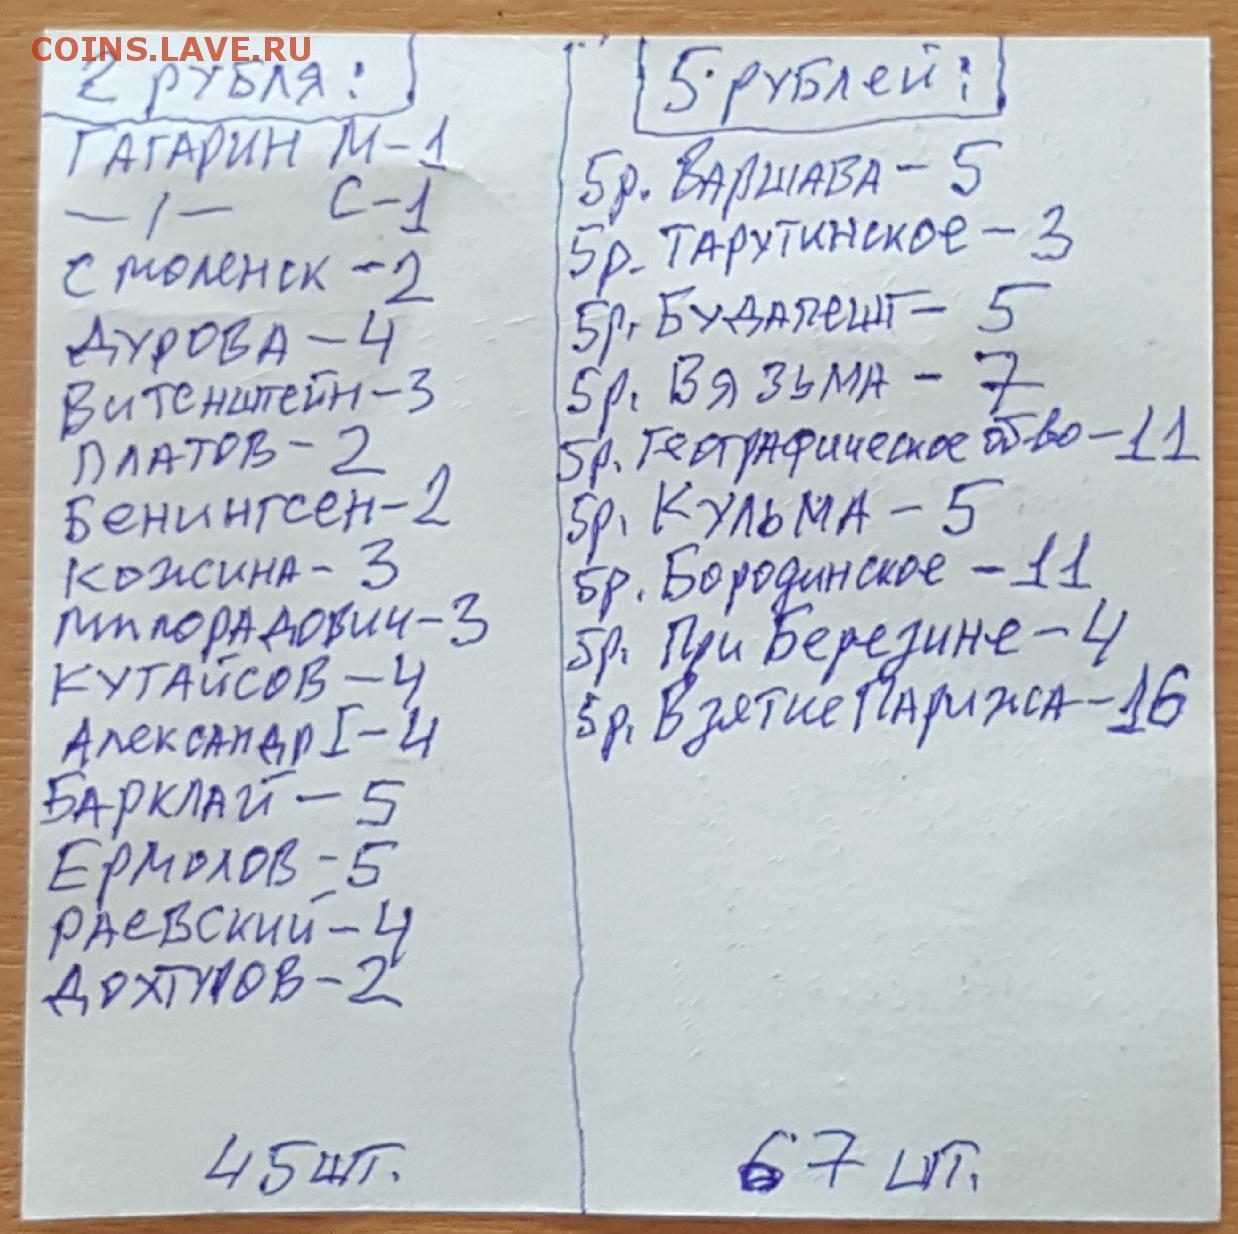 COINS.LAVE.RU
2 рубля:
ГАГАРИН М-1
—/— С-1
Смоленск-2
ДУРОВА-4
Витенштейн-3
ПЛАТОВ-2
Бенингсен-2
Кожина-3
Милорадович-3
КУТАЙСОВ-4
Александр I-4
БАРКЛАЙ-5
ЕРМОЛОВ-5
РАЕВСКИЙ-4
ДОХТУРОВ-2
45 шт.
5 рублей:
5р. ВАРШАВА-5
5р. ТАРУТИНСКОЕ-3
5р. БУДАПЕШТ-5
5р. ВЯЗЬМА-7
5р. Географическое об-во-11
5р. КУЛЬМА-5
5р. Бородинское-11
5р. При Березине-4
5р. Взятие Парижа-16
67 шт.